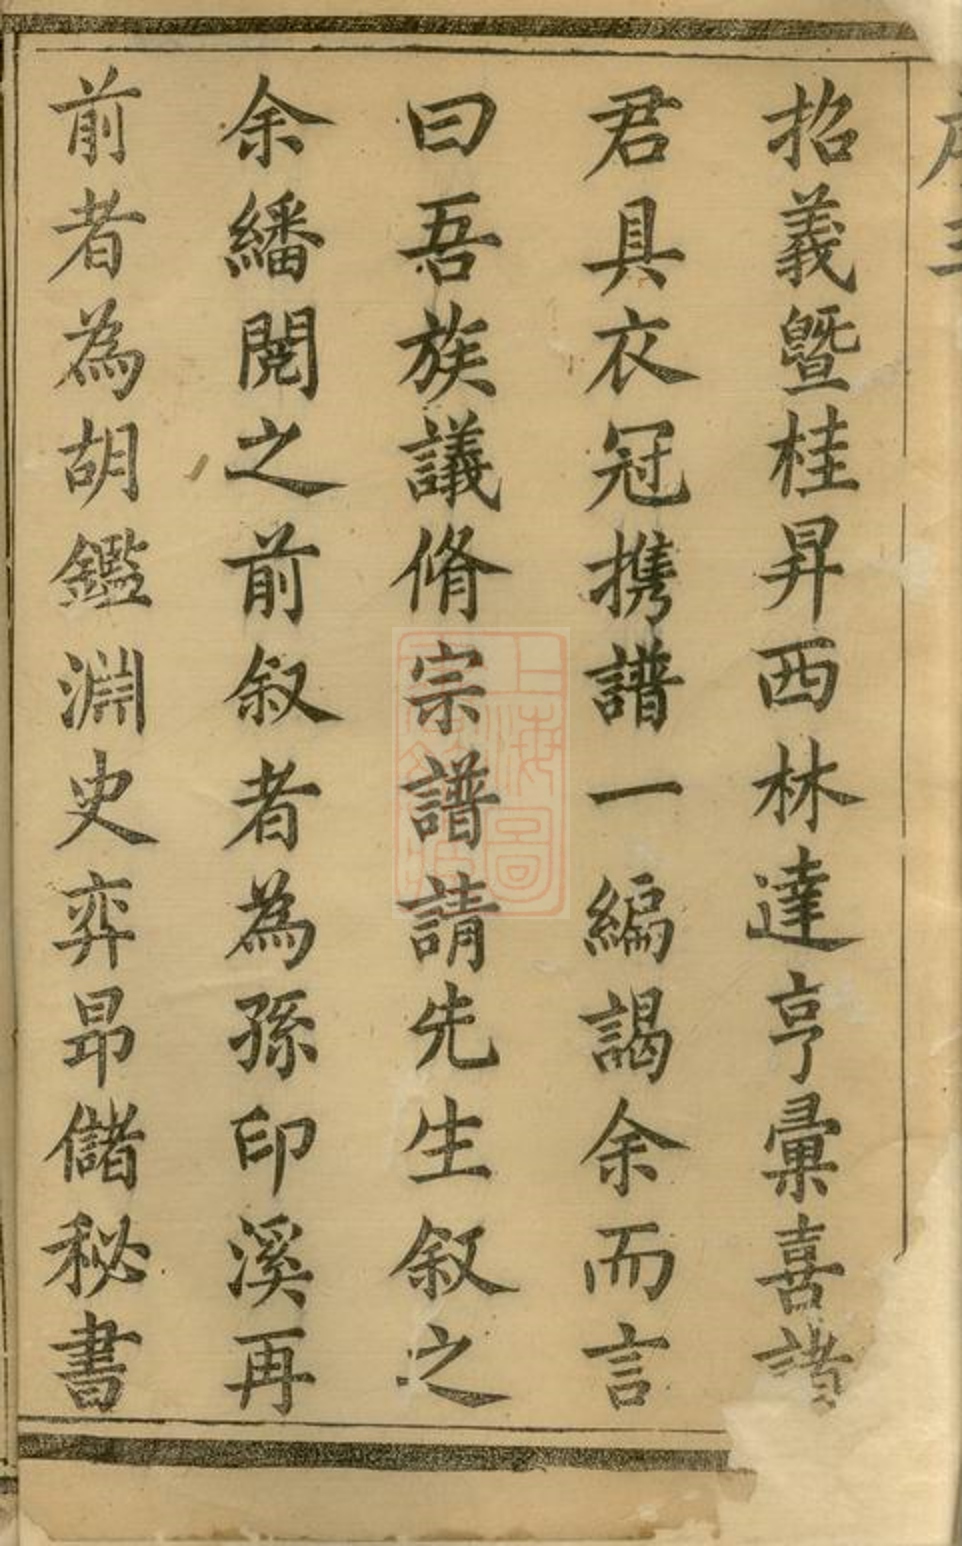 招義暨桂昇西林達亨彙喜諸
君具衣冠携譜一編謁余而言
曰吾族議脩宗譜請先生叙之
余繙閱之前叙者為孫印溪再
前者為胡鑑淵史弈昂儲秘書
上海圖